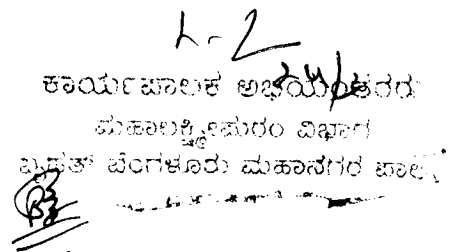 L-2
ಕಾರ್ಯಪಾಲಕ ಅಭಿಯಂತರರು
ಮಹಾಲಕ್ಷ್ಮೀಪುರಂ ವಿಭಾಗ
ಬೃಹತ್ ಬೆಂಗಳೂರು ಮಹಾನಗರ ಪಾಲಿಕೆ